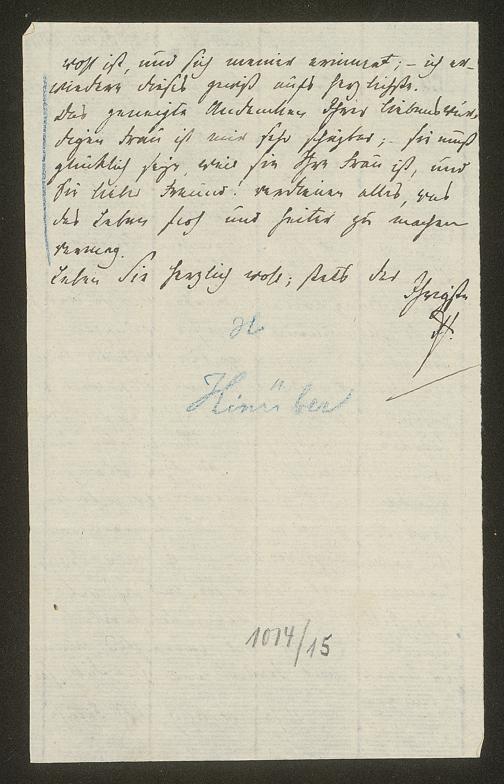 wohl ist, und sich meiner erinnert; – ich er-
wiedere dieses gewiß aufs herzlichste.
Das geneigte Andenken Ihrer liebenswür-
digen Frau ist mir sehr schätzbar; – sie muß
glücklich seyn, weil sie Ihre Frau ist, und
Sie lieber Freund! verdienen alles, was
das Leben froh und heiter zu machen
vermag.
Leben Sie herzlich wohl; stets der
Ihrigste
H.
Hinüber
1014/15